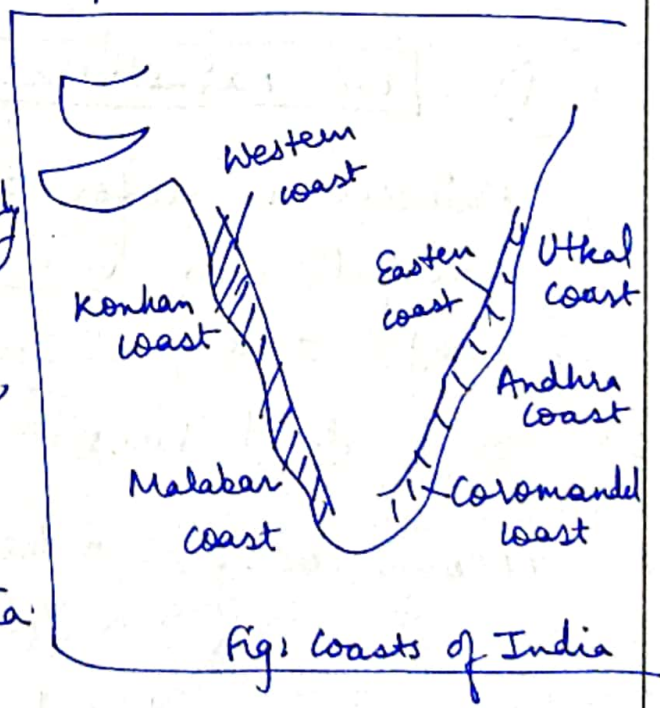 Western
coast
Eastern
coast
Utkal
coast
Konkan
coast
Andhra
coast
Malabar
coast
Coromandel
coast
Fig: Coasts of India